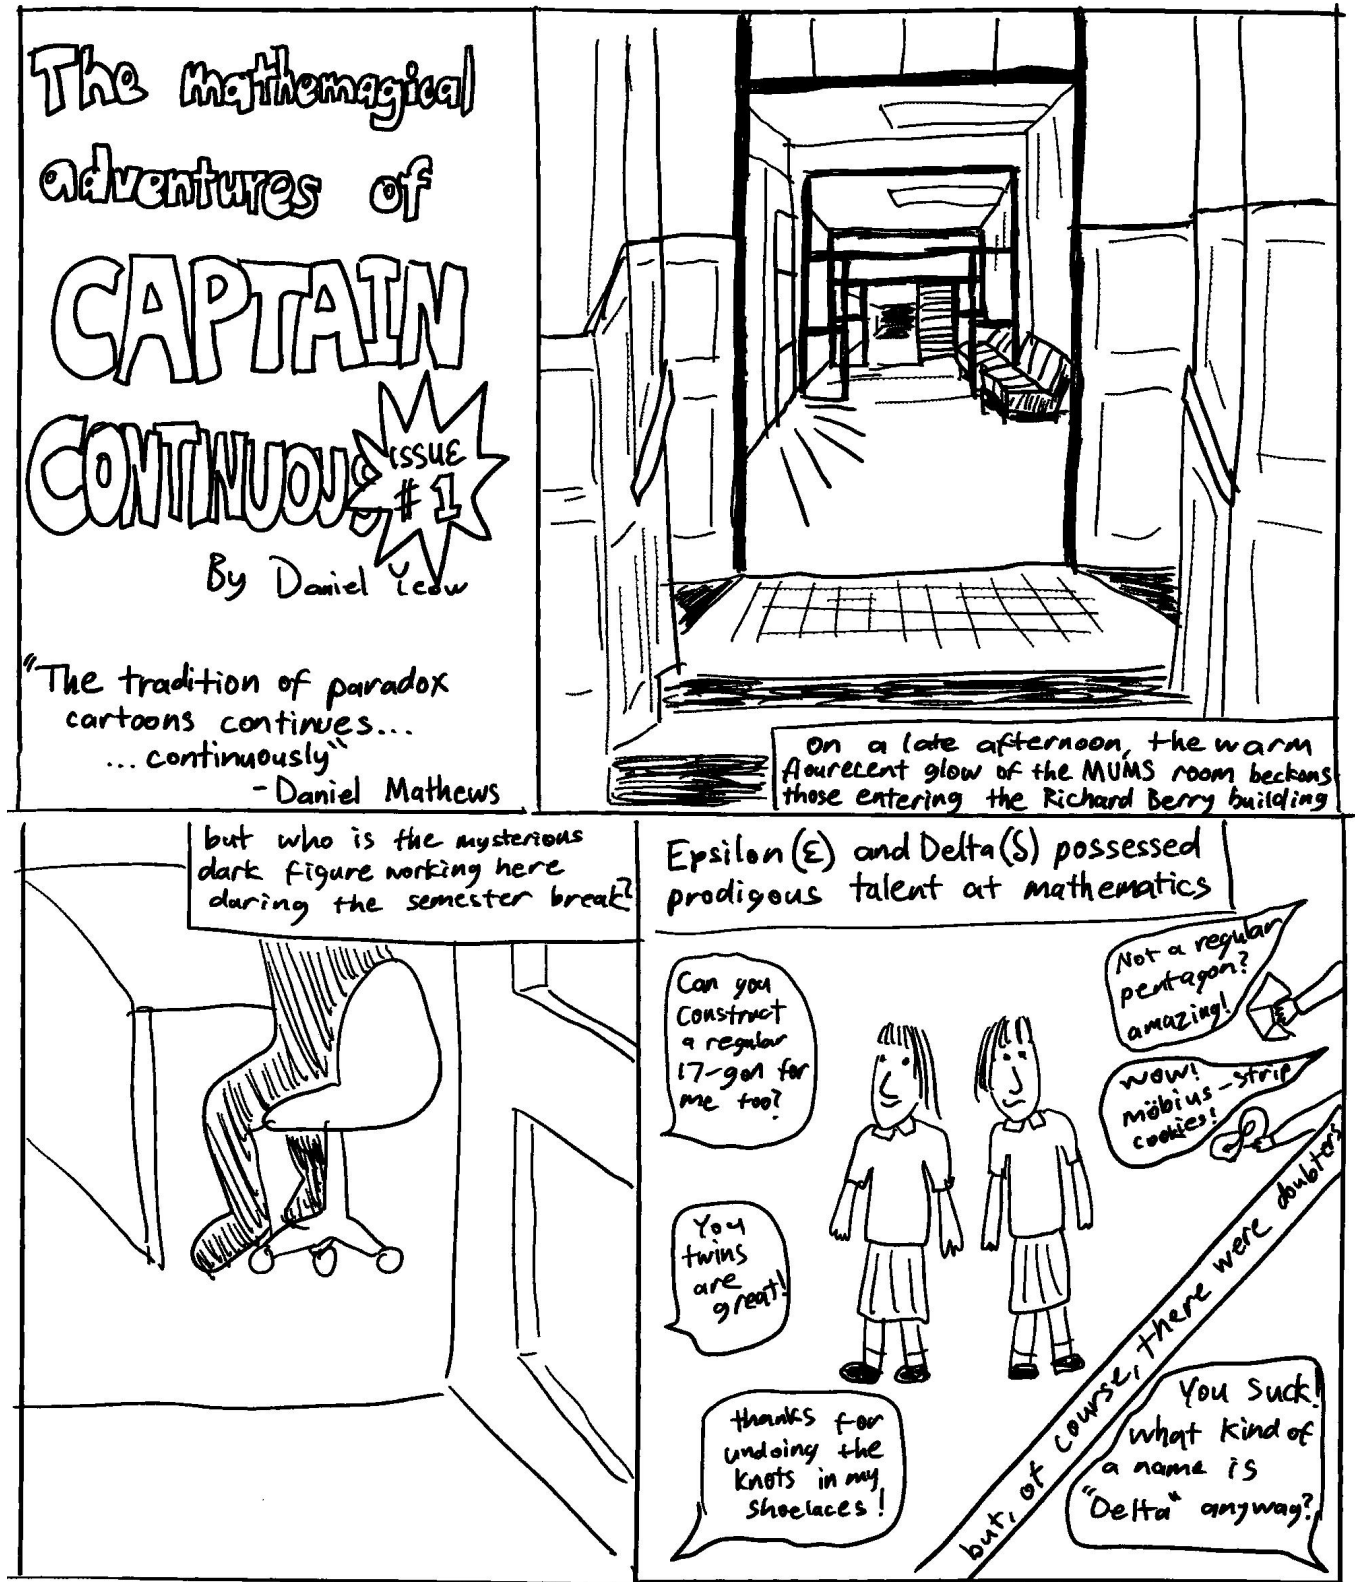 The mathemagical
adventures of
CAPTAIN
CONTINUOUS
ISSUE
#1
By Daniel Yeow
"The tradition of paradox
cartoons continues...
...continuously"
- Daniel Mathews
on a late afternoon, the warm
flourecent glow of the MUMS room beckons
those entering the Richard Berry building
but who is the mysterious
dark figure working here
during the semester break?
Epsilon (ε) and Delta (δ) possessed
prodigous talent at mathematics
Can you
construct
a regular
17-gon for
me too?
Not a regular
pentagon?
amazing!
wow!
möbius-strip
cookies!
You
twins
are
great!
thanks for
undoing the
knots in my
shoelaces!
but, of course, there were doubters
You suck!
what kind of
a name is
"Delta" anyway?